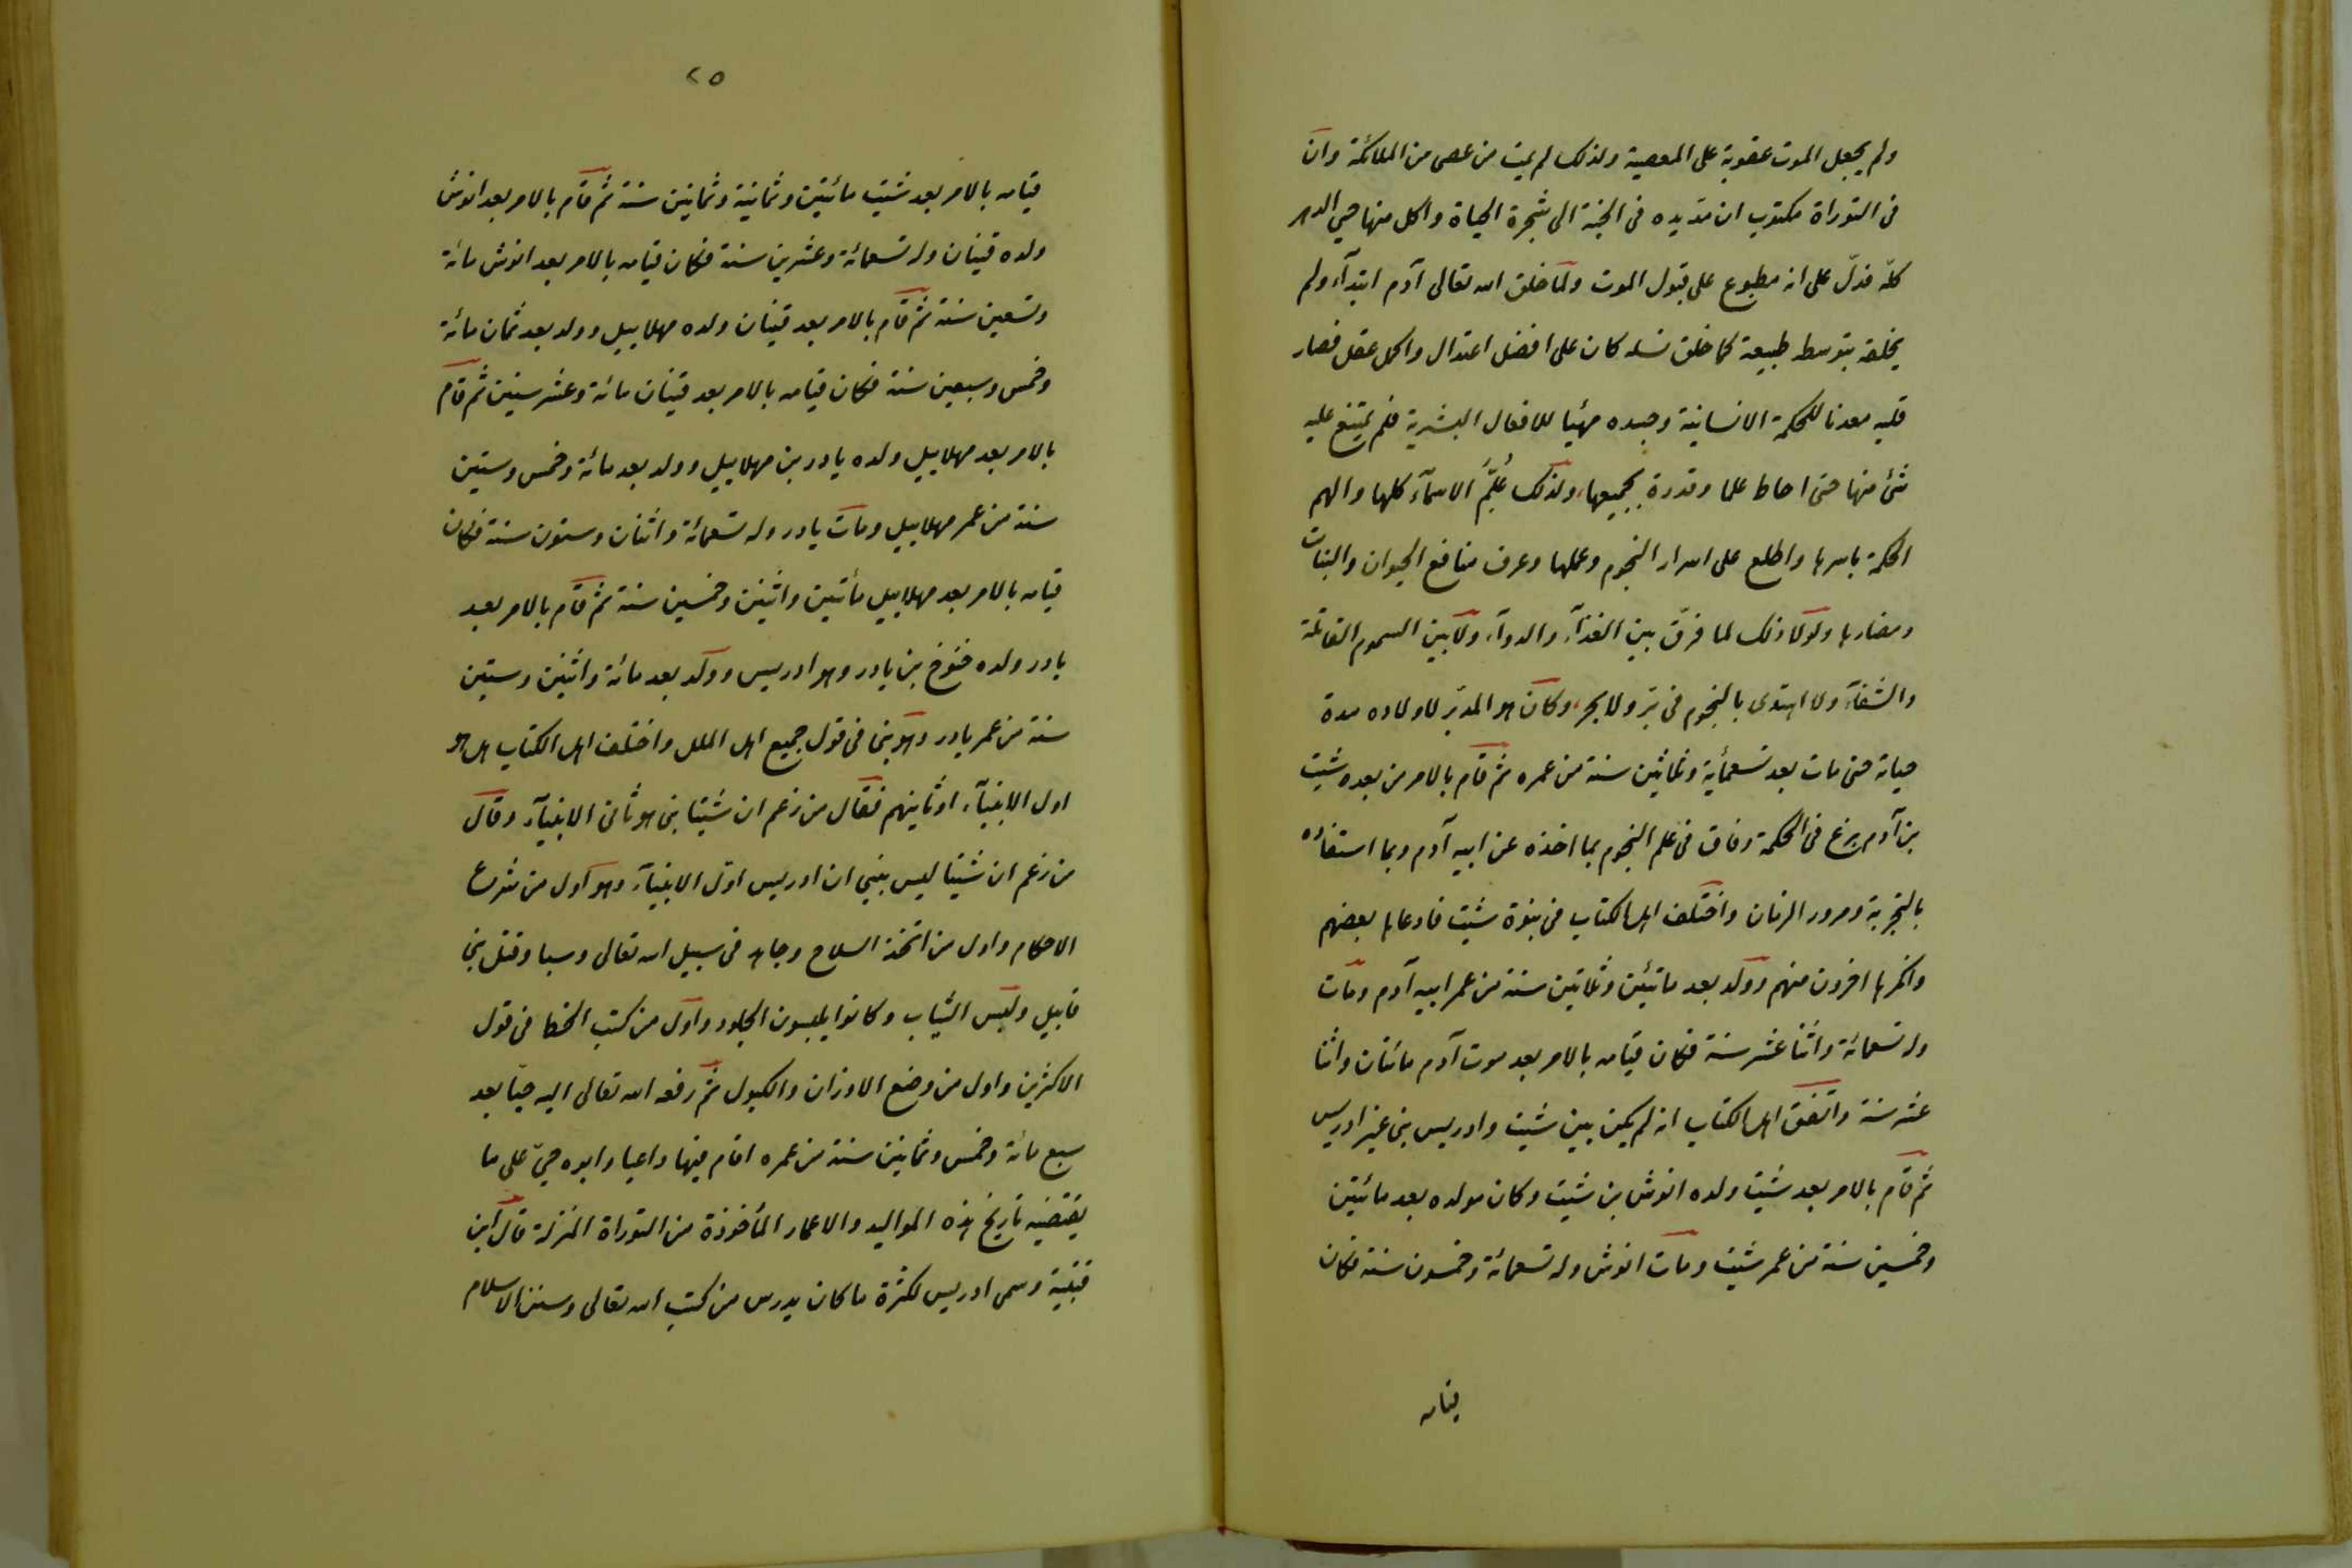 ولم يجعل الموت عقوبة على المعصية ولذلك لم يمت من عصى من الملائكة وان
فى التوراة مكتوب ان مدّ يده فى الجنة الى شجرة الحياة واكل منها حيى الدهر
كلّه فدلّ على انه مطبوع على قبول الموت ولما خلق الله تعالى آدم ابتدآء ولم
يخلقه بتوسط طبيعة كما خلق نسله كان على افضل اعتدال واكمل عقل فصار
قلبه معدنا للحكمة الانسانية وجسده مهيّيا للافعال البشرية فلم يمتنع عليه
شئ منها حتى احاط علما وقدرة بجميعها، ولذلك عُلِّمَ الاسمآء كلها والهم
الحكمة باسرها واطلع على اسرار النجوم وعملها وعرف منافع الحيوان والنبات
ومضارها ولولا ذلك لما فرّق بين الغذآء والدوآء ولا بين السموم القاتلة
والشفآء ولا اهتدى بالنجوم فى برّ ولا بحر، وكان هو المدبّر لاولاده مدة
حياته حتى مات بعد تسعماية وثلاثين سنة من عمره ثم قام بالامر من بعده شيث
بن آدم برع فى الحكمة وفاق فى علم النجوم بما اخذه عن ابيه آدم وبما استفاده
بالتجربة ومرور الزمان واختلف اهل الكتاب فى نبوة شيث فادعاها بعضهم
وانكرها اخرون منهم وولد بعد مائتين وثلاثين سنة من عمر ابيه آدم ومات
وله تسعمائة واثنا عشر سنة فكان قيامه بالامر بعد موت آدم مائتان واثنا
عشر سنة واتفق اهل الكتاب انه لم يكن بين شيث وادريس نبى غير ادريس
ثم قام بالامر بعد شيث ولده انوش بن شيث وكان مولده بعد مائتين
وخمسين سنة من عمر شيث ومات انوش وله تسعمائة وخمسون سنة فكان
قيامه
٢٥
قيامه بالامر بعد شيث مائتين وثمانية وثمانين سنة ثم قام بالامر بعد انوش
ولده قينان وله تسعمائة وعشرين سنة فكان قيامه بالامر بعد انوش مائة
وتسعين سنة ثم قام بالامر بعد قينان ولده مهلاييل وولد بعد ثمان مائة
وخمس وسبعين سنة فكان قيامه بالامر بعد قينان مائة وعشر سنين ثم قام
بالامر بعد مهلاييل ولده يادر بن مهلاييل وولد بعد مائة وخمس وستين
سنة من عمر مهلاييل ومات يادر وله تسعمائة واثنان وستون سنة فكان
قيامه بالامر بعد مهلاييل مأتين واثنين وخمسين سنة ثم قام بالامر بعد
يادر ولده خنوخ بن يادر وهو ادريس وولد بعد مائة واثنين وستين
سنة من عمر يادر وهو نبى فى قول جميع اهل الملل واختلف اهل الكتاب هل هو
اول الانبيآء او ثانيهم فقال من زعم ان شيثا نبى هو ثانى الانبيآء وقال
من زعم ان شيثا ليس بنبي ان ادريس اوّل الانبيآء وهو اول من شرع
الاحكام واول من اتخذ السلاح وجاهد فى سبيل الله تعالى وسبا وقتل بنى
قابيل ولبس الثياب وكانوا يلبسون الجلود واول من كتب الخط فى قول
الاكثرين واول من وضع الاوزان والكيول ثم رفعه الله تعالى اليه حيّا بعد
سبع مائة وخمس وثمانين سنة من عمره اقام فيها داعيا وابوه حيّ على ما
يقتضيه تاريخ هذه المواليد والاعمار المأخوذة من التوراة المنزلة قال ابن
قتيبة وسمى ادريس لكثرة ما كان يدرس من كتب الله تعالى وسنن الاسلام